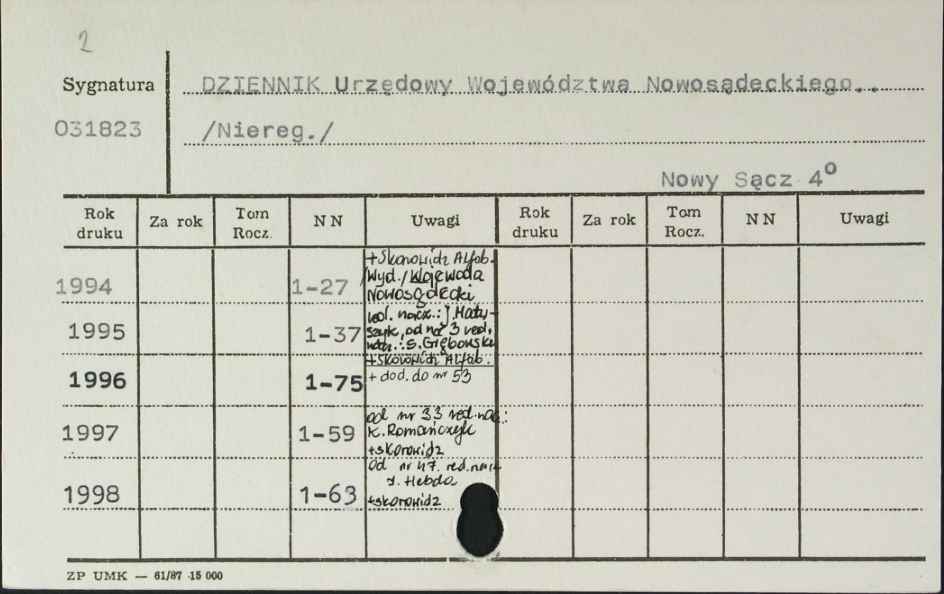 2
Sygnatura DZIENNIK Urzędowy Województwa Nowosądeckiego..
031823 /Niereg./
Nowy Sącz 4º
Rok druku Za rok Tom Rocz. N N Uwagi Rok druku Za rok Tom Rocz. N N Uwagi
+Skorowidz Alfab.
1994 1-27 /Wyd./Wojewoda
Nowosądecki
red. nacz.: J. Maty-
1995 1-37 szyk, od nr 3 red.
nacz.: S. Grębowski
+Skorowidz Alfab.
1996 1-75 + dod. do nr 53
od nr 33 red. nacz.:
1997 1-59 K. Romańczyk
+skorowidz
Od nr 47. red. nacz.
J. Hebda
1998 1-63 +skorowidz
ZP UMK — 61/87 15 000